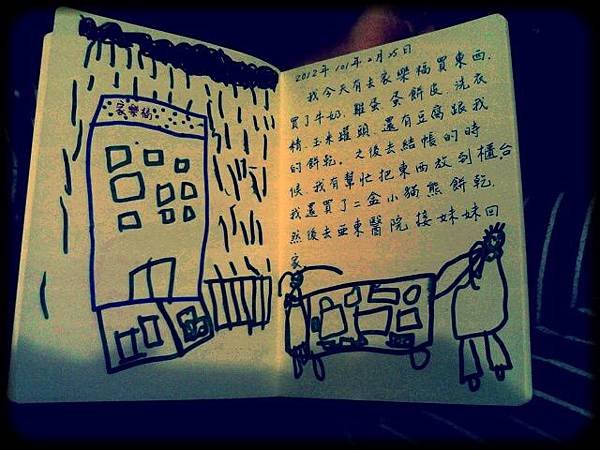 家樂福
2012年 101年 2月25日
我今天有去家樂福買東西.
買了牛奶.雞蛋.蛋餅皮.洗衣
精.玉米罐頭.還有豆腐跟我
的餅乾。之後去結帳的時
候.我有幫忙把東西放到櫃台.
我還買了二盒小貓熊餅乾.
然後去亞東醫院接妹妹回
家